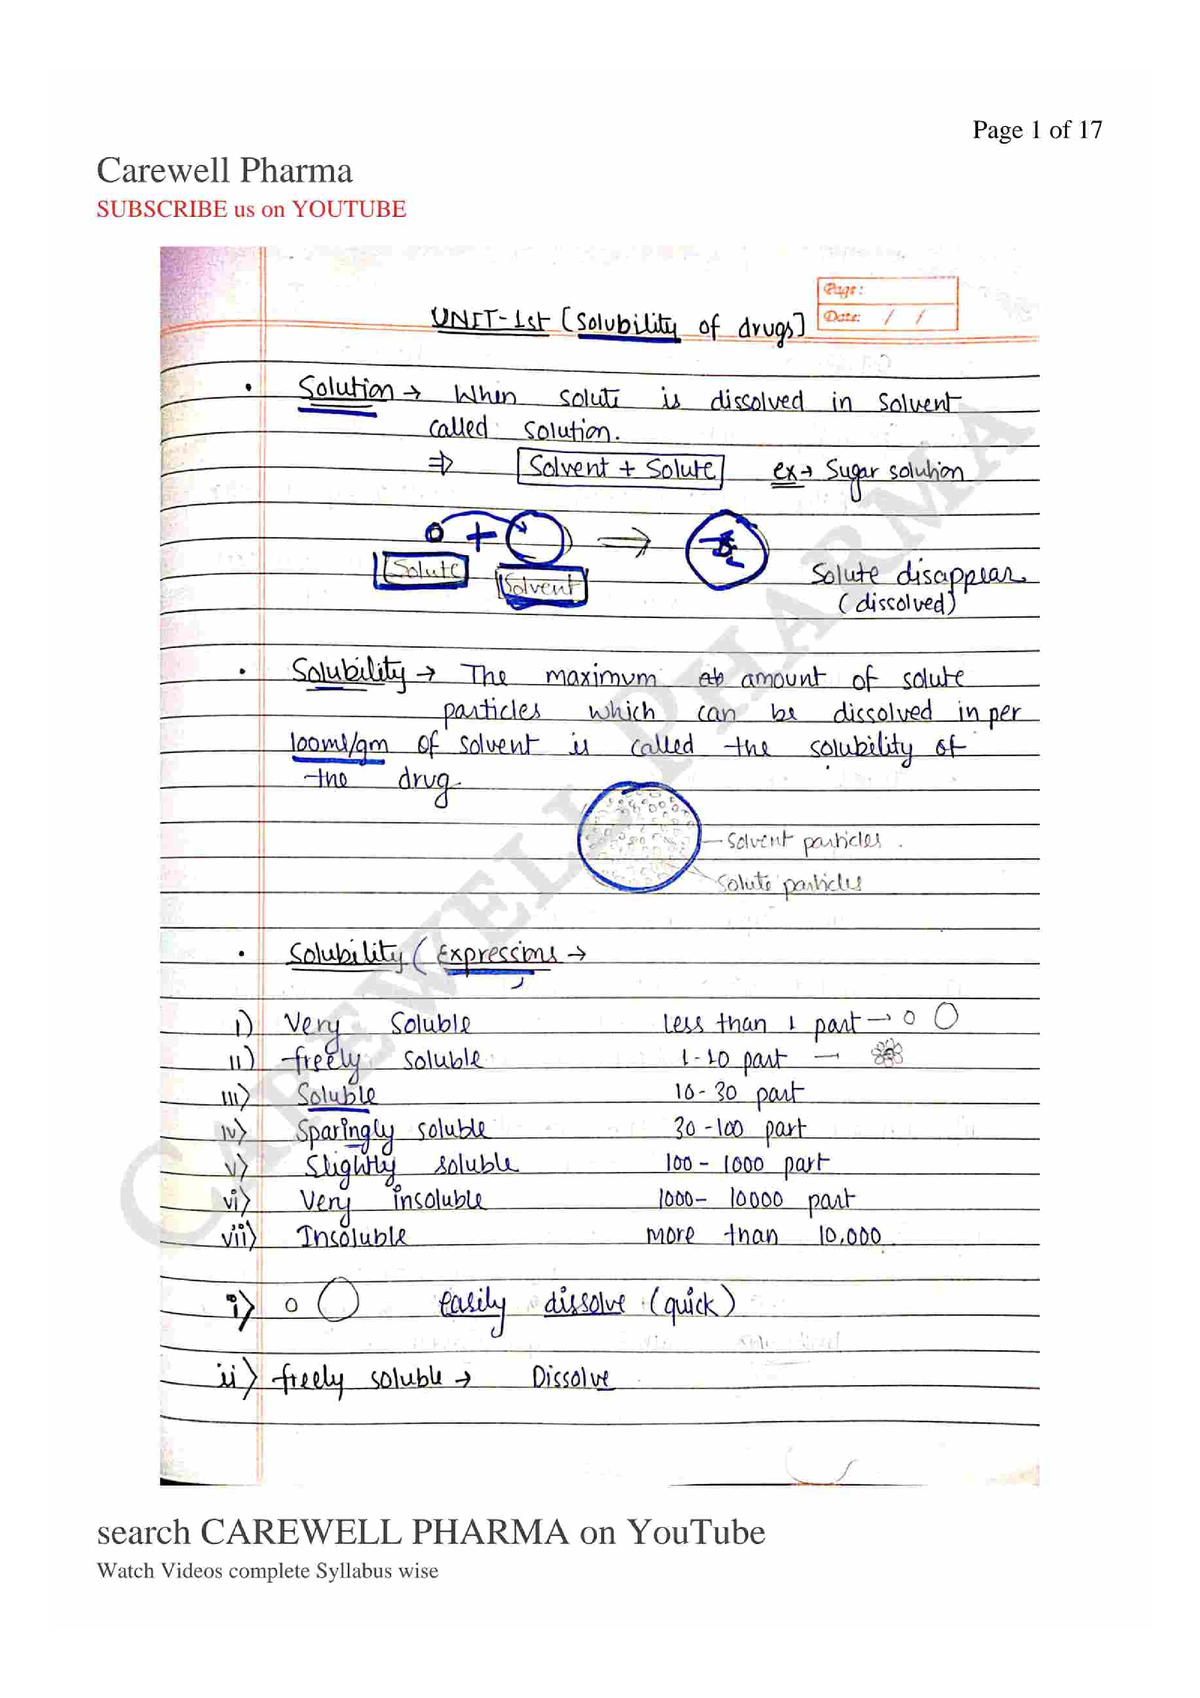 Page 1 of 17
Carewell Pharma
SUBSCRIBE us on YOUTUBE
Page:
Date: / /
UNIT-1st [Solubility of drugs]
• Solution → When solute is dissolved in solvent
called solution.
⇒ Solvent + Solute ex → Sugar solution
+ →
Solute Solvent
Solute disappear
(dissolved)
• Solubility → The maximum amount of solute
particles which can be dissolved in per
100ml/gm of solvent is called the solubility of
the drug.
Solvent particles.
Solute particles
• Solubility (Expressions →
i) Very Soluble less than 1 part →
ii) freely soluble 1-10 part —
iii) Soluble 10-30 part
iv) Sparingly soluble 30-100 part
v) Slightly soluble 100 - 1000 part
vi) Very insoluble 1000- 10000 part
vii) Insoluble more than 10,000
i) easily dissolve (quick)
ii) freely soluble → Dissolve
CAREWELL PHARMA
search CAREWELL PHARMA on YouTube
Watch Videos complete Syllabus wise